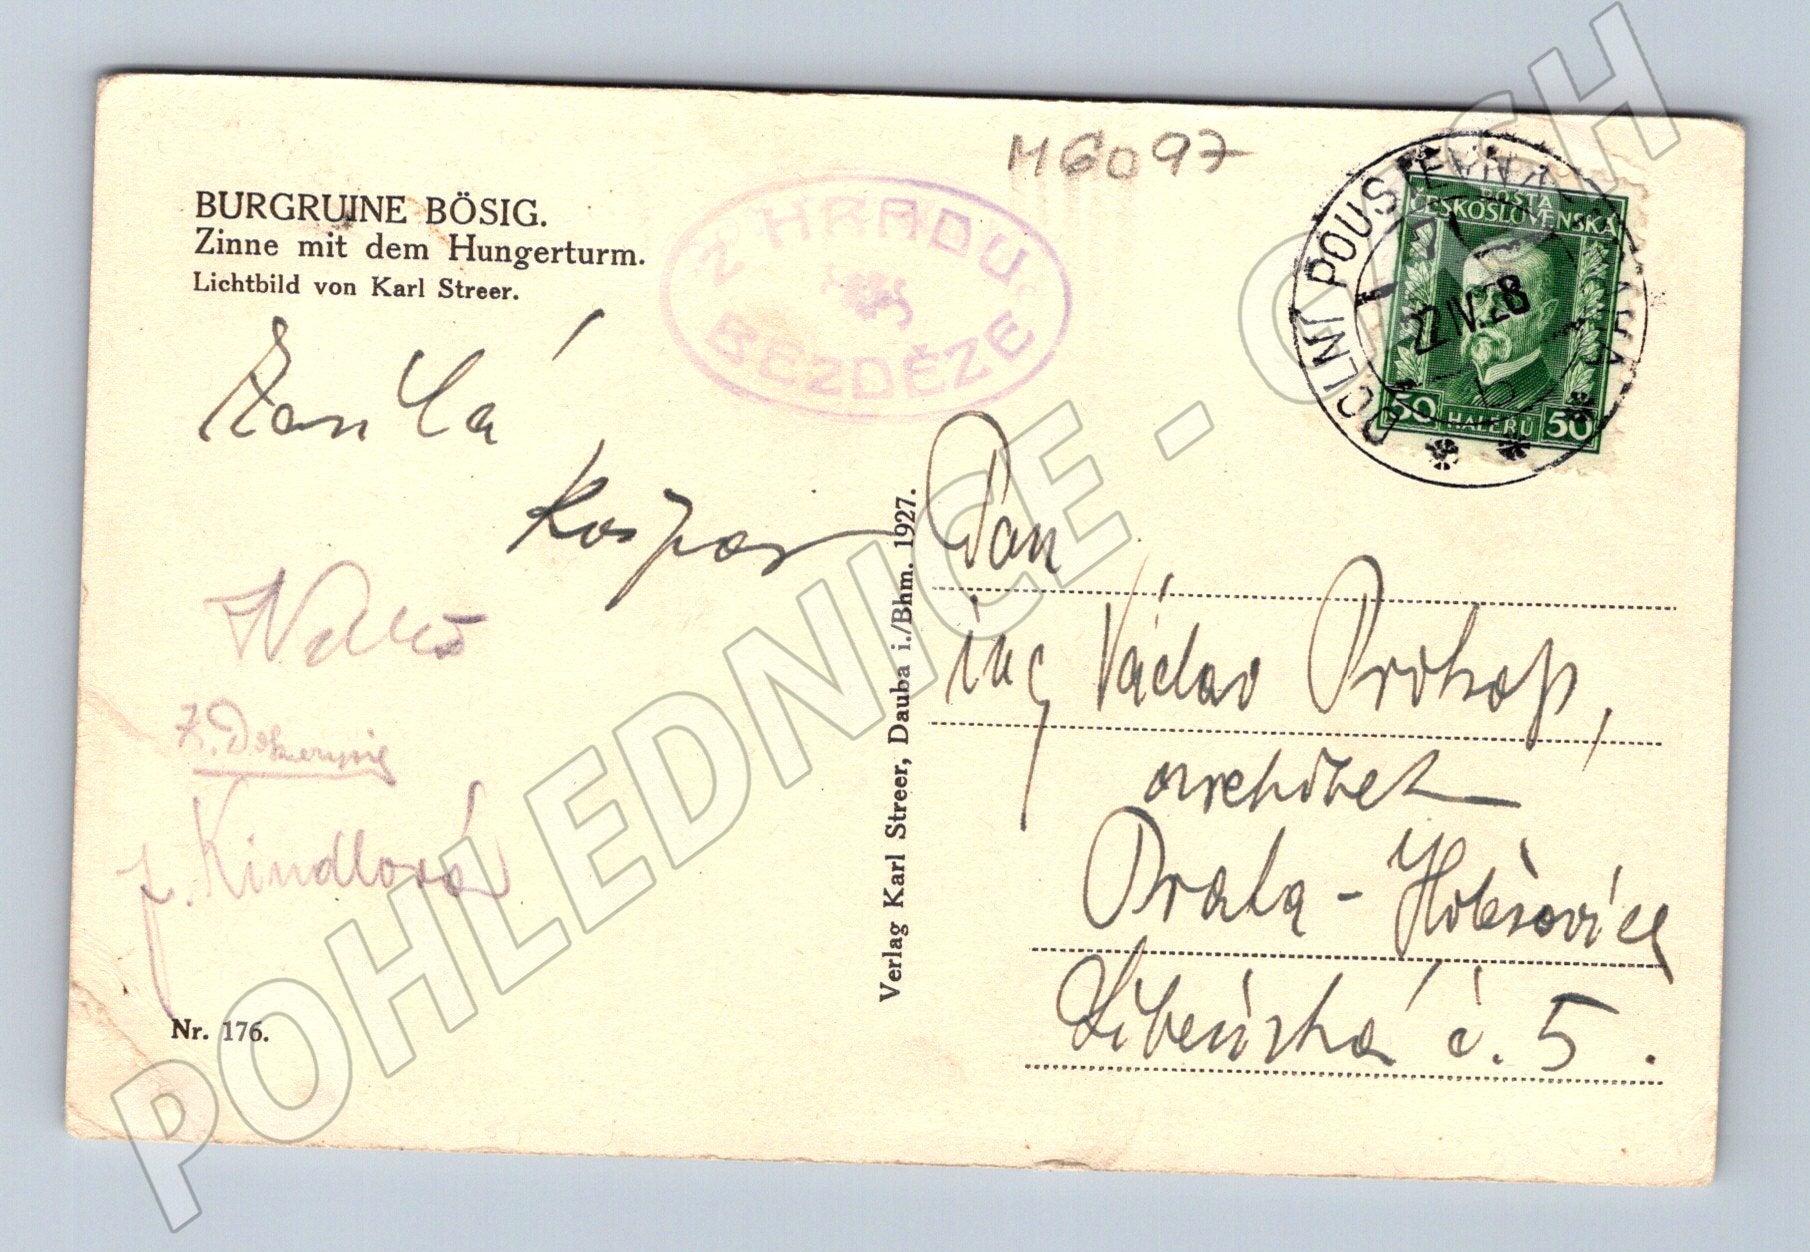 BURGRUINE BÖSIG.
Zinne mit dem Hungerturm.
Lichtbild von Karl Streer.
M6097
Z HRADU
BEZDĚZE
DOLNÍ POUSTEVNA
22.IV.28
POŠTA
ČESKOSLOVENSKÁ
50 HALÉŘŮ 50
Kaspar
J. Kindlová
Nr. 176.
Verlag Karl Streer, Dauba i./Bhm. 1927.
Pan
ing Václav Prokop,
architekt
Praha - Holešovice
Libeňská č. 5.
POHLEDNICE -